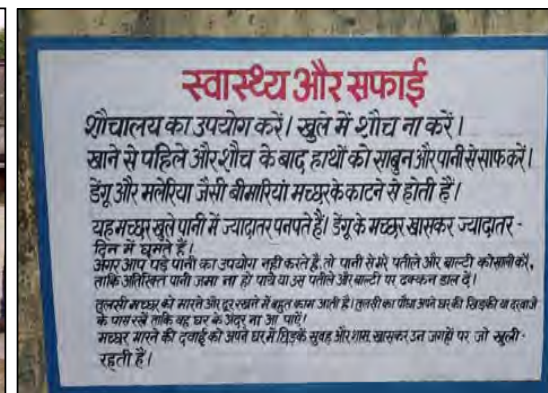 स्वास्थ्य और सफाई
शौचालय का उपयोग करें। खुले में शौच ना करें।
खाने से पहिले और शौच के बाद हाथों को साबुन और पानी से साफ करें।
डेंगू और मलेरिया जैसी बीमारियां मच्छर के काटने से होती हैं।
यह मच्छर खुले पानी में ज्यादातर पनपते हैं। डेंगू के मच्छर खासकर ज्यादातर -
दिन में घूमते हैं।
अगर आप पडे पानी का उपयोग नही करते है, तो पानी से भरे पतीले और बाल्टी को खाली करें,
ताकि अतिरिक्त पानी जमा ना हो पाये या उस पतीले और बाल्टी पर ढक्कन डाल दें।
तुलसी मच्छर को मारने और दूर रखने में बहुत काम आती है। तुलसी का पौधा अपने घर की खिड़की या दरवाजे
के पास रखें ताकि वह घर के अंदर ना आ पाएं।
मच्छर मारने की दवाई को अपने घर में छिड़कें सुबह और शाम, खासकर उन जगहों पर जो खुली -
रहती है।